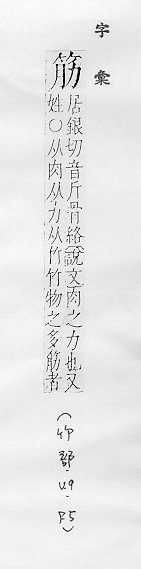 字彙
筋
居銀切音斤骨絡說文肉之力也又
姓○从肉从力从竹竹物之多筋者
(竹部.49.P5)